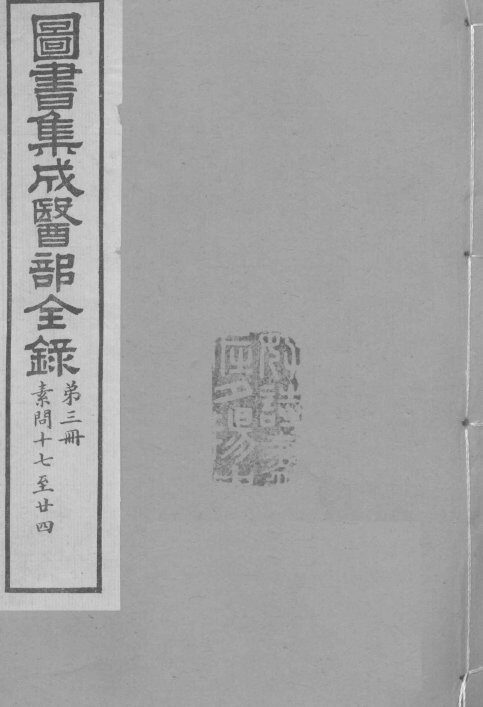 圖書集成醫部全錄
第三冊
素問十七至廿四